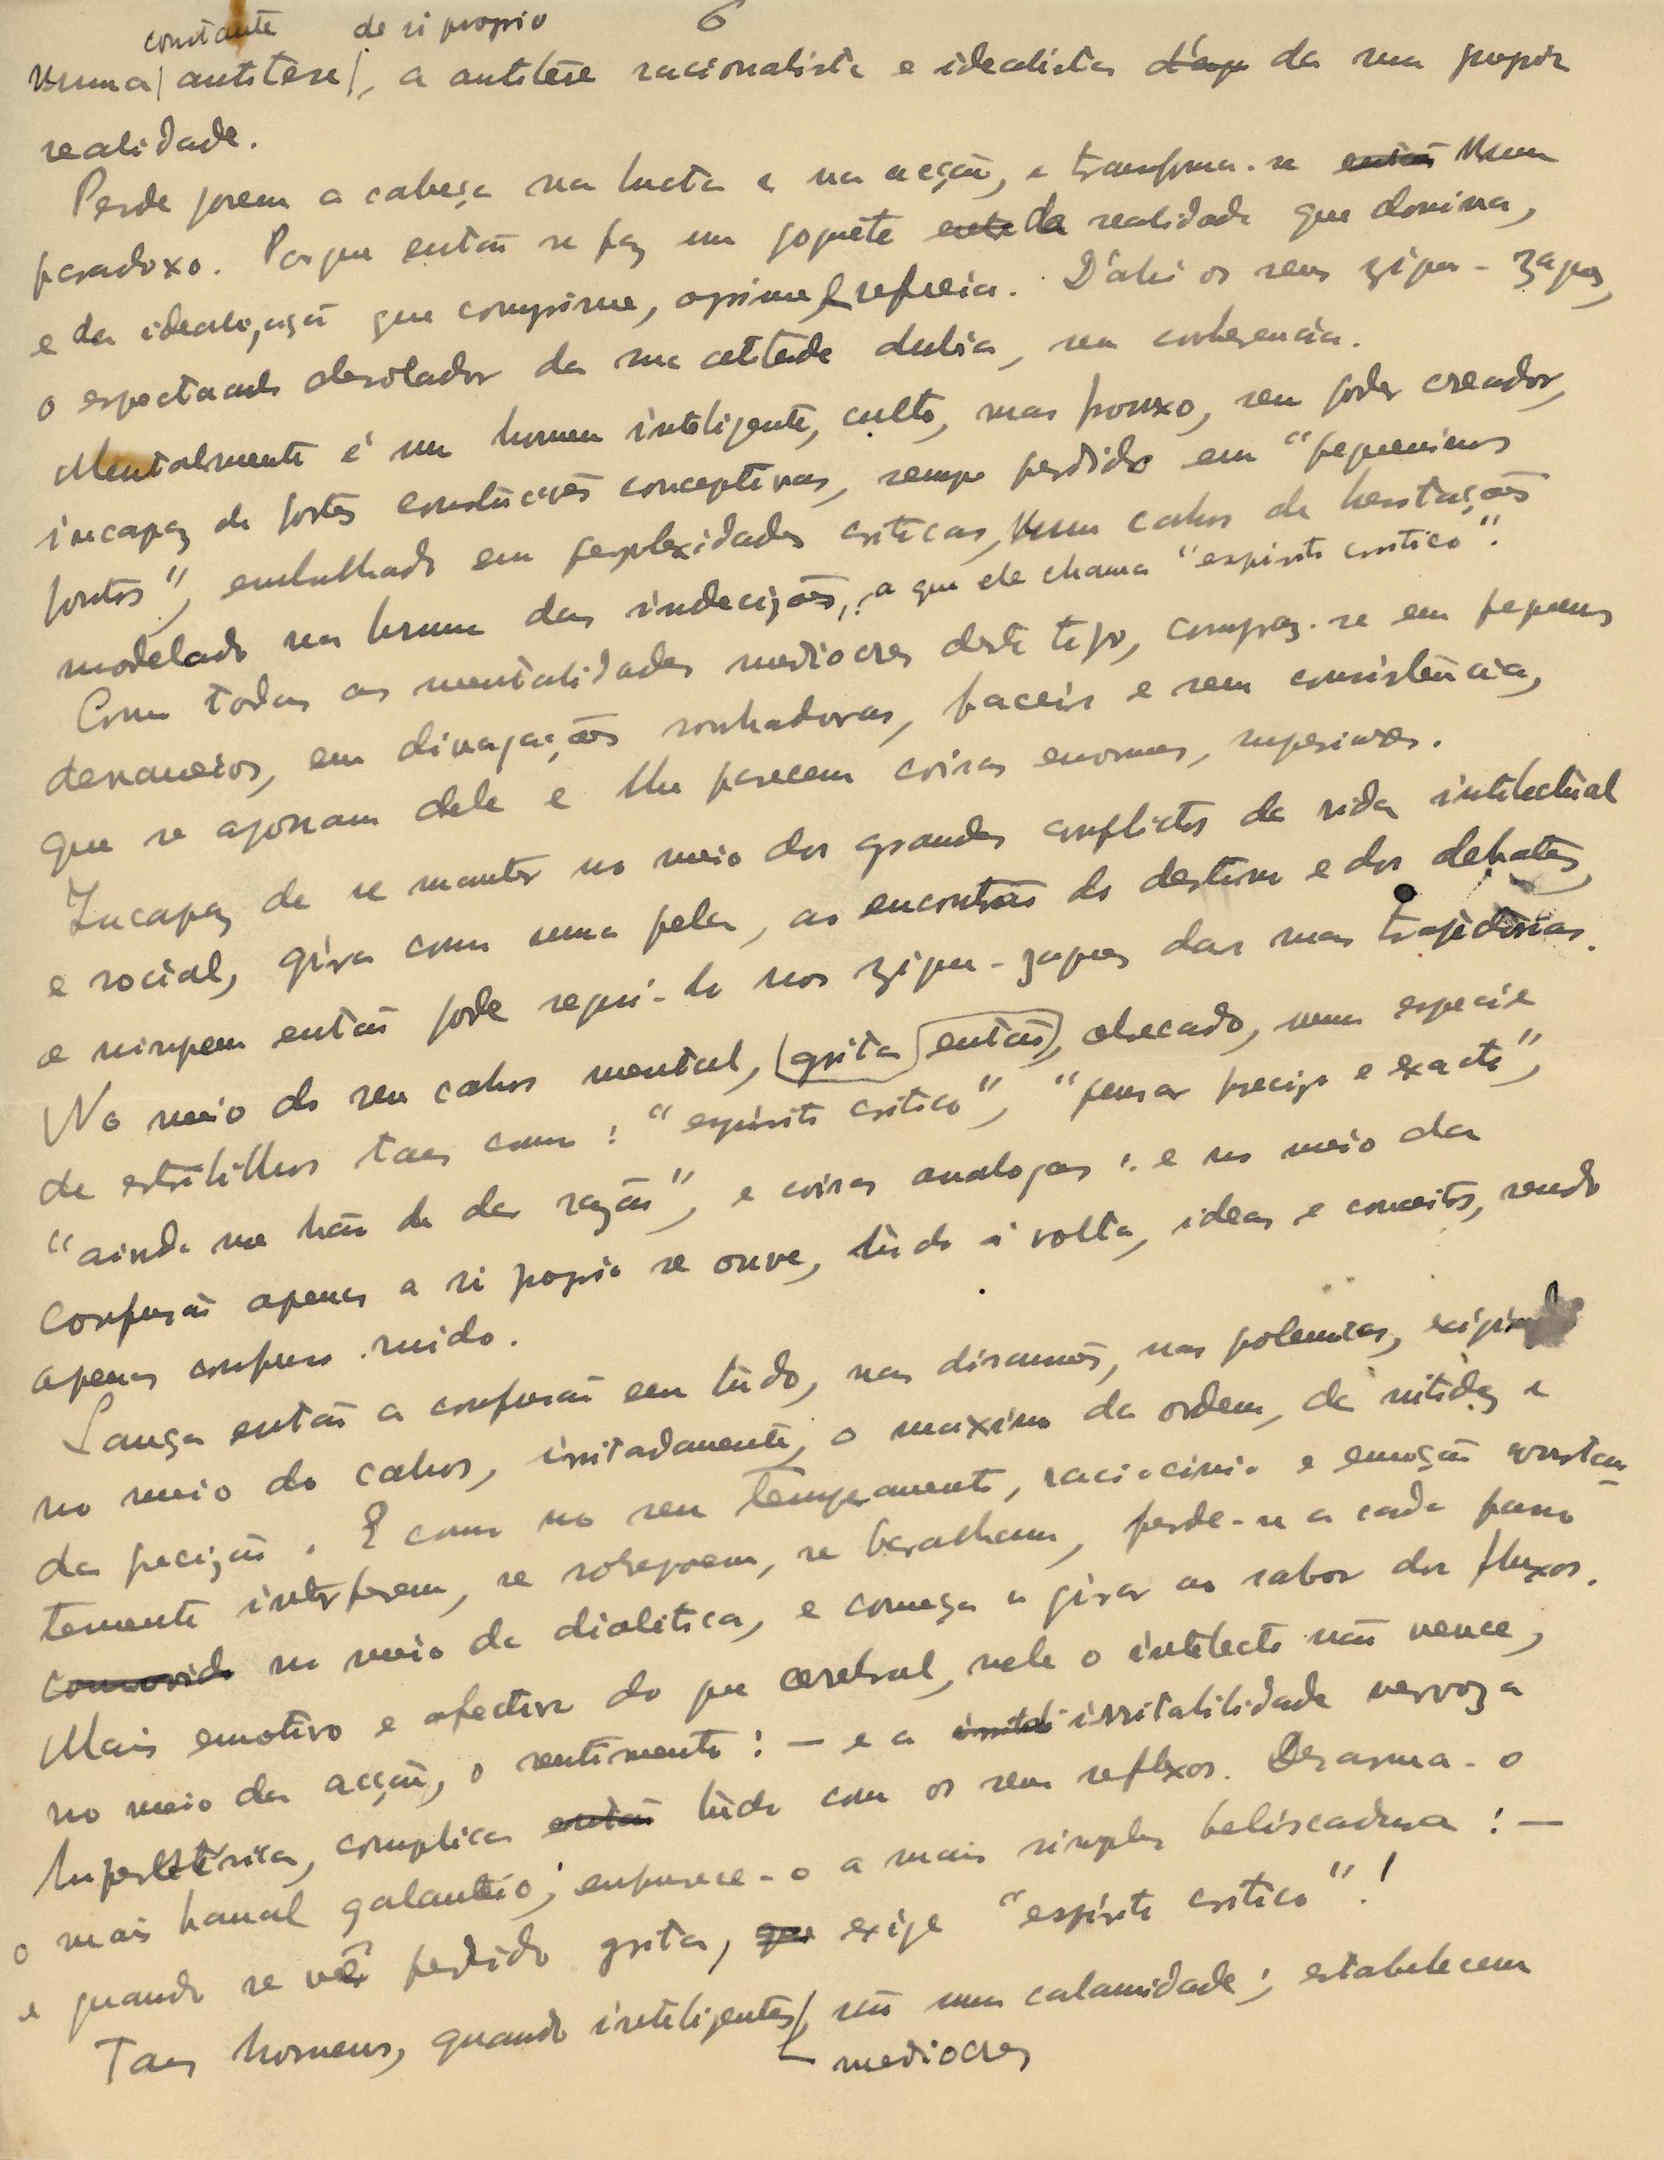 6
constante de si proprio
numa antitese, a antitese racionalista e idealista da sua propria
realidade.
Perde porem a cabeça na lucta e na acção, e transforma-se então num
paradoxo. Porque então se faz um joguete da realidade que domina,
e da idealização que comprime, oprime e refreia. D'ahi os seus zigue-zagues,
o espectaculo desolador da sua attitude dubia, sem coherencia.
Mentalmente é um homem inteligente, culto, mas frouxo, sem poder creador,
incapaz de fortes construcções conceptivas, sempre perdido em "pequeninos
pontos", embrulhado em perplexidades criticas, num cahos de hesitações
modelado na bruma das indecizões, a que ele chama "espirito critico".
Como todas as mentalidades mediocres deste tipo, compraz-se em pequenos
devaneios, em divagações sonhadoras, faceis e sem consistencia,
que se apossam dele e lhe parecem coisas enormes, superiores.
Incapaz de se manter no meio dos grandes conflictos da vida intelectual
e social, gira como uma pela, aos encontrões do destino e dos debates,
e ninguem então pode segui-lo nos zigue-zagues das suas trajectorias.
No meio do seu cahos mental, grita então, obcecado, uma especie
de estribilhos taes como: "espirito critico", "pensar preciso e exacto",
"ainda me hão de dar razão", e coisas analogas: e no meio da
confusão apenas a si proprio se ouve, tudo á volta, ideas e conceitos, sendo
apenas confuso ruido.
Lança então a confusão em tudo, nas discussões, nas polemicas, exigindo
no meio do cahos, irritadamente, o maximo da ordem, da nitidez e
da precizão. E como no seu temperamento, raciocinio e emoção constan-
temente interferem, se sobrepoem, se baralham, perde-se a cada passo
comovido no meio da dialitica, e começa a girar ao sabor dos fluxos.
Mais emotivo e afectivo do que cerebral, nele o intelecto não vence,
no meio da acção, o sentimento: — e a irritabilidade nervoza
hysterica, complica então tudo com os seus reflexos. Desarma-o
o mais banal galanteio; enfurece-o a mais simples beliscadura: —
e quando se vê perdido grita, que exige "espirito critico"!
Taes homens, quando inteligentes, são uma calamidade; estabelecem
mediocres